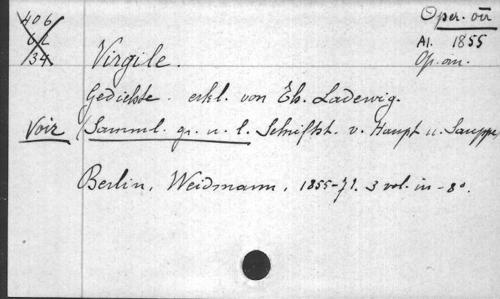 406
62
34
Oper. vir
Al. 1855
Op. om.
Virgile.
Gedichte. erkl. von Th. Ladewig.
Voir (Samml. gr. u. l. Schriftst. v. Haupt u. Sauppe)
Berlin, Weidmann, 1855-71. 3 vol. in-8°.